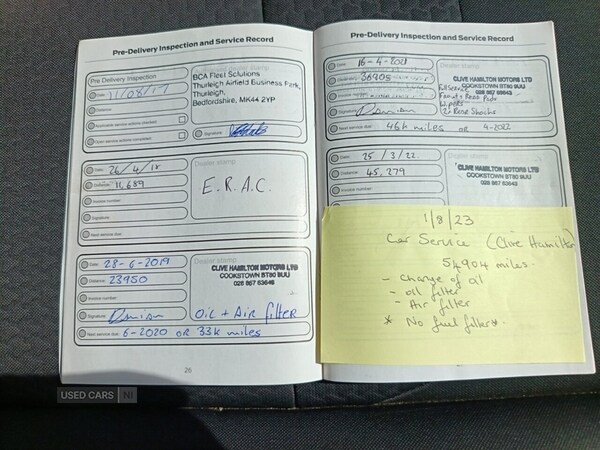 Pre-Delivery Inspection and Service Record
Pre Delivery Inspection
Date: 11/08/17
Distance:
BCA Fleet Sclutions
Thurleigh Airfield Business Park,
Thurleigh,
Bedfordshire, MK44 2YP
Signature:
Date: 26/4/18
Distance: 11,689
Invoice number:
Signature:
Next service due:
Dealer stamp
E.R.A.C.
Date: 28-6-2019
Distance: 23950
Invoice number:
Signature:
Next service due: 6-2020 OR 33k miles
Dealer stamp
CLIVE HAMILTON MOTORS LTD
COOKSTOWN BT80 8UU
028 867 63643
OIL + AIR FILTER
26
Pre-Delivery Inspection and Service Record
Date: 16-4-2021
Distance: 36905
Signature:
Next service due: 46k miles OR 4-2022
CLIVE HAMILTON MOTORS LTD
COOKSTOWN BT80 8UU
028 867 63643
Front + Rear Pads
Wipers
Date: 25/3/22.
Distance: 45,279
Invoice number:
CLIVE HAMILTON MOTORS LTD
COOKSTOWN BT80 8UU
028 867 63643
1/8/23
Car Service (Clive Hamilton)
54904 miles.
- Change of oil
- oil filter
- Air filter
* No fuel filter*.
USED CARS NI